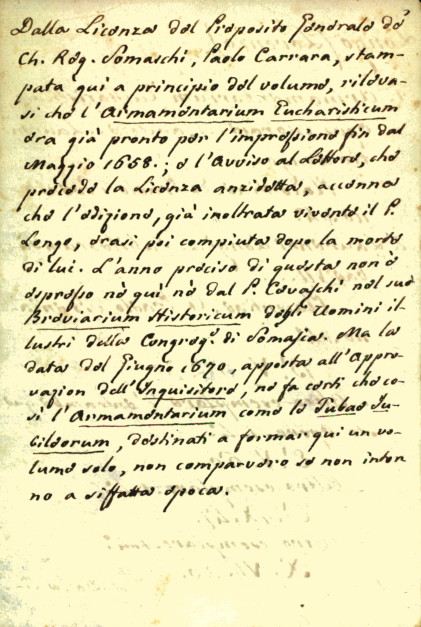 Dalla Licenza del Preposito Generale de'
Ch. Reg. Somaschi, Paolo Carrara, stam-
pata qui a principio del volume, rileva-
si che l'Armamentarium Eucharisticum
era già pronto per l'impressione fin dal
Maggio 1658.; e l'Avviso al Lettore, che
precede la Licenza anzidetta, accenna
che l'edizione, già inoltrata vivente il P.
Longo, erasi poi compiuta dopo la morte
di lui. L'anno preciso di questa non è
espresso nè qui nè dal P. Cevaschi nel suo
Breviarium Historicum degli Uomini il-
lustri della Congreg.e di Somasca. Ma la
data del Giugno 1670, apposta all'Appro-
vazion dell'Inquisitore, ne fa certi che co-
sì l'Armamentarium come le Tubae Ju-
bileorum, destinati a formar qui un vo-
lume solo, non comparvero se non intor
no a siffatta epoca.